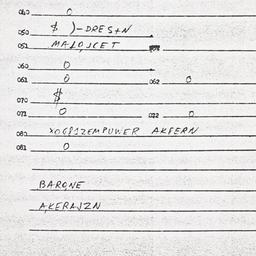 040 0
050 $ )-DRES+N
051 MALOJCET
060 0
061 0 062 0
070 $
071 0 072 0
080 XOGPSZEMPUWER AKFERN
081 0
BARQNE
AKERAJZN